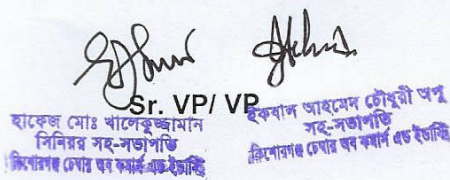 Sr. VP/ VP
হাফেজ মোঃ খালেকুজ্জামান
সিনিয়র সহ-সভাপতি
কিশোরগঞ্জ চেম্বার অব কমার্স এন্ড ইন্ডাস্ট্রি
ইকবাল আহমেদ চৌধুরী অপু
সহ-সভাপতি
কিশোরগঞ্জ চেম্বার অব কমার্স এন্ড ইন্ডাস্ট্রি